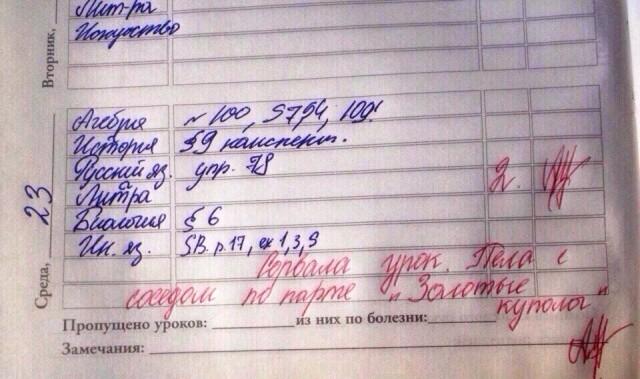 Вторник,
Лит-ра
Искусство
Среда, 23
Агебра № 100, 5794, 109!
История §9 конспект.
Русский яз. упр. 78 2.
Литра
Биология § 6
Ин. яз. SB. p. 17, ex 1, 3, 9
Сорвала урок. Пела с
соседом по парте "Золотые
купола"
Пропущено уроков: из них по болезни:
Замечания: